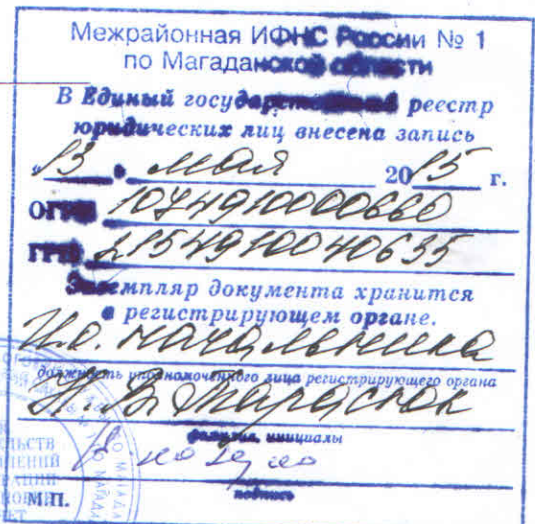 Межрайонная ИФНС России № 1
по Магаданской области
В Единый государственный реестр
юридических лиц внесена запись
"13" мая 2015 г.
ОГРН 1074910000660
ГРН 2154910040635
Экземпляр документа хранится
в регистрирующем органе.
И.о. начальника
должность уполномоченного лица регистрирующего органа
Тарасюк
фамилия, инициалы
подпись
М.П.